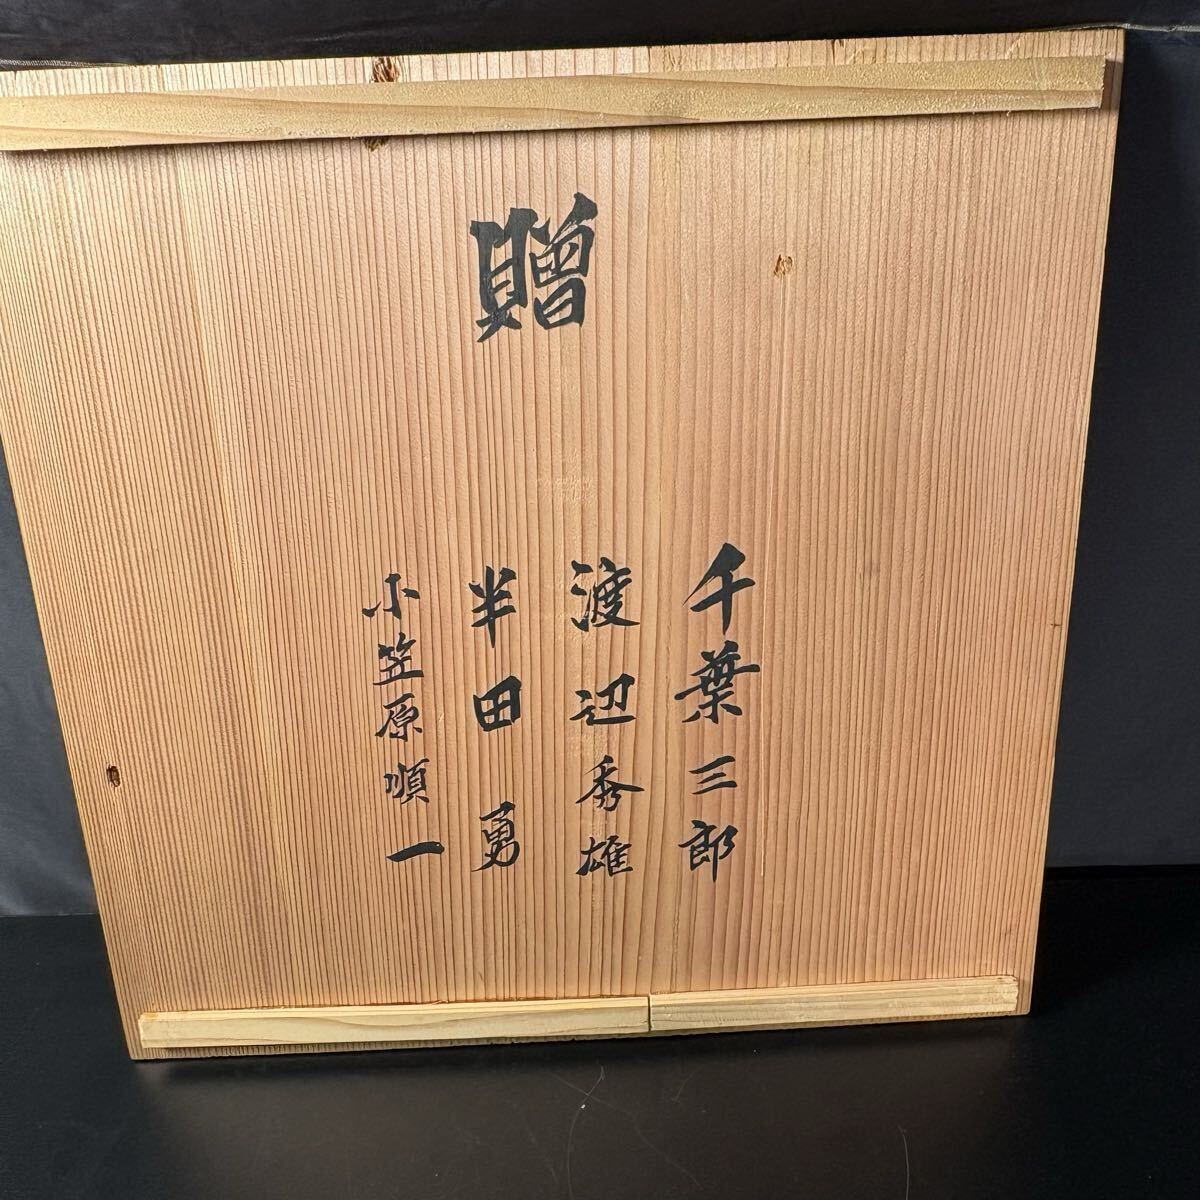 贈
千葉三郎
渡辺秀雄
半田勇
小笠原順一